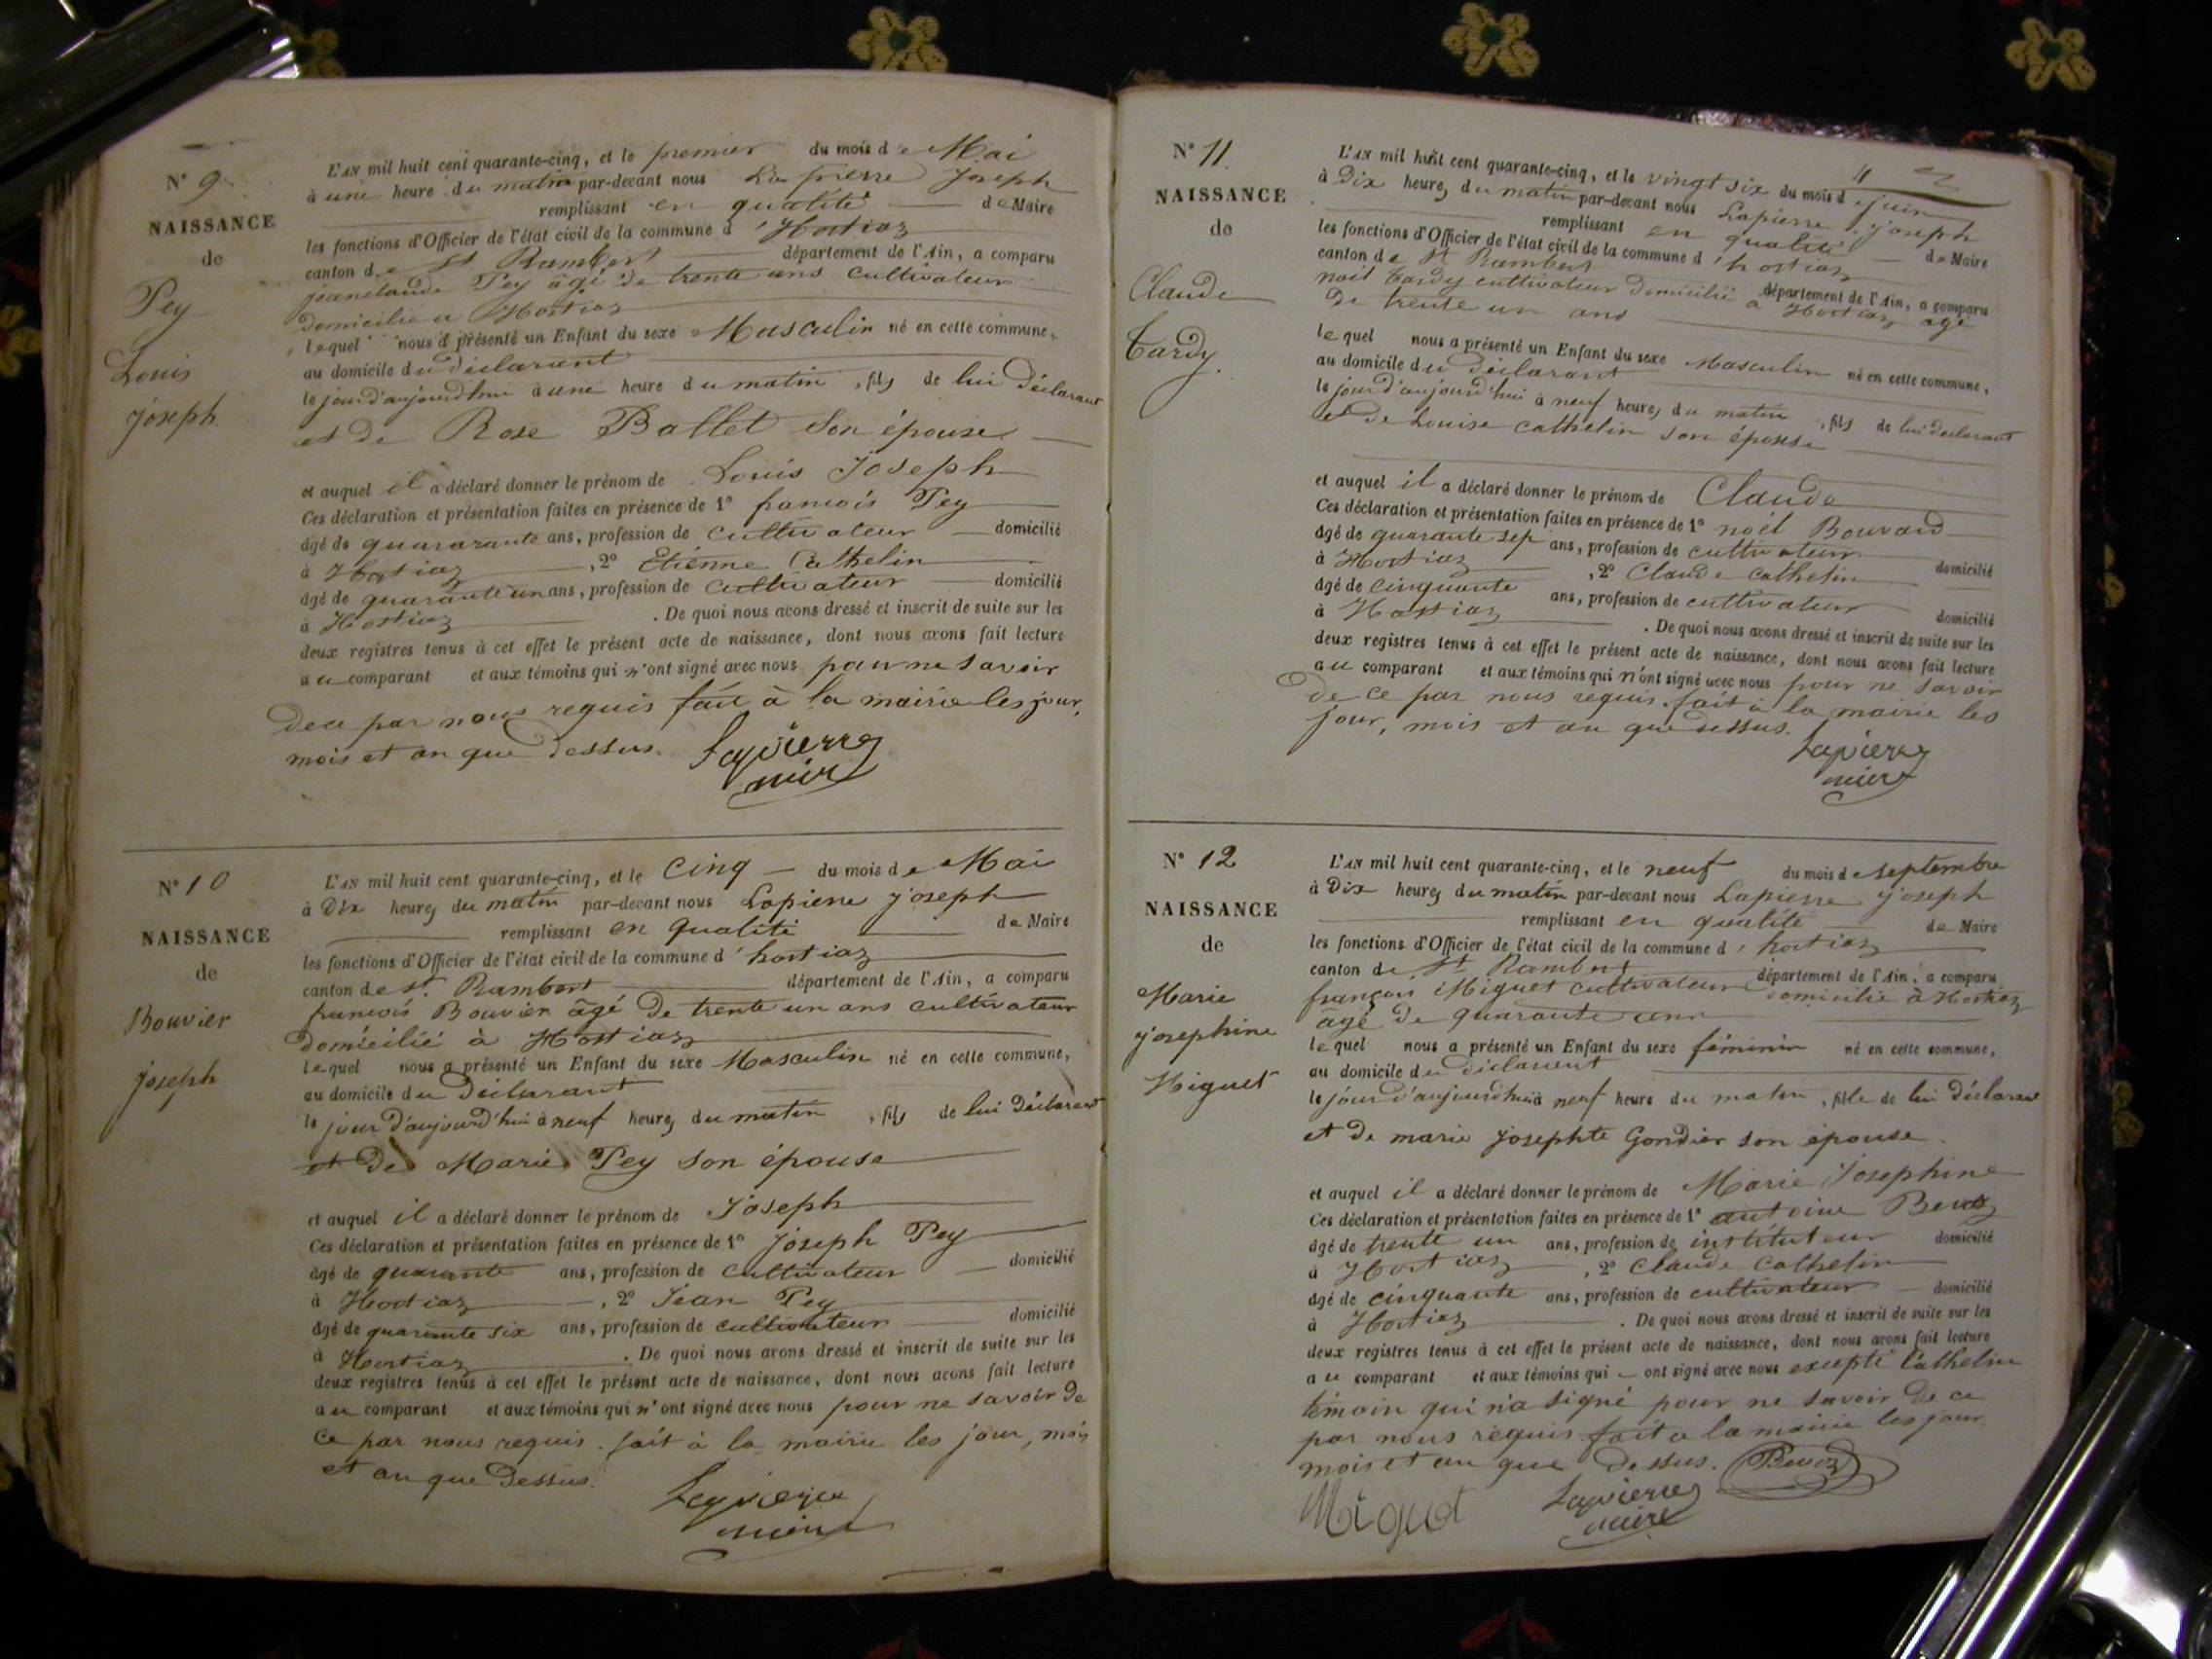 N° 9.
NAISSANCE
de
Pey
Louis
joseph
L'AN mil huit cent quarante-cinq, et le premier du mois de Mai
à une heure du matin par-devant nous La pierre Joseph
remplissant en qualité de Maire
les fonctions d'Officier de l'état civil de la commune d'Hostiaz
canton de St Rambert département de l'Ain, a comparu
jeanclaude Pey âgé de trente ans cultivateur
domicilié a Hostiaz
lequel nous a présenté un Enfant du sexe Masculin né en cette commune,
au domicile du déclarant
le jour d'aujourd'hui à une heure du matin, fils de lui Déclarant
et de Rose Ballet Son épouse
et auquel il a déclaré donner le prénom de Louis Joseph
Ces déclaration et présentation faites en présence de 1° francois Pey
âgé de quararante ans, profession de cultivateur domicilié
à Hostiaz, 2° Etienne Cathelin
âgé de quarante un ans, profession de cultivateur domicilié
à Hostiaz. De quoi nous avons dressé et inscrit de suite sur les
deux registres tenus à cet effet le présent acte de naissance, dont nous avons fait lecture
au comparant et aux témoins qui n'ont signé avec nous pour ne savoir
dece par nous requis fait à la mairie les jour,
mois et an que dessus.
Lapierre
mire
N° 10
NAISSANCE
de
Bouvier
joseph
L'AN mil huit cent quarante-cinq, et le cinq du mois de Mai
à Dix heures du matin par-devant nous Lapierre joseph
remplissant en qualité de Maire
les fonctions d'Officier de l'état civil de la commune d'hostiaz
canton de St. Rambert département de l'Ain, a comparu
francois Bouvier âgé de trente un ans cultivateur
domicilié à Hostiaz
lequel nous a présenté un Enfant du sexe Masculin né en cette commune,
au domicile du Déclarant
le jour d'aujourd'hui à neuf heures du matin, fils de lui Déclarant
et de Marie Pey son épouse
et auquel il a déclaré donner le prénom de Joseph
Ces déclaration et présentation faites en présence de 1° joseph Pey
âgé de quarante ans, profession de cultivateur domicilié
à Hostiaz, 2° Jean Pey
âgé de quarante six ans, profession de cultivateur domicilié
à Hostiaz. De quoi nous avons dressé et inscrit de suite sur les
deux registres tenus à cet effet le présent acte de naissance, dont nous avons fait lecture
au comparant et aux témoins qui n'ont signé avec nous pour ne savoir de
ce par nous requis. fait à la mairie les jour, mois
et an que dessus.
Lapierre
mire
11
N° 11.
NAISSANCE
de
Claude
Tardy.
L'AN mil huit cent quarante-cinq, et le vingt six du mois de juin
à Dix heures du matin par-devant nous Lapierre joseph
remplissant en qualité de Maire
les fonctions d'Officier de l'état civil de la commune d'hostiaz
canton de St Rambert département de l'Ain, a comparu
noël tardy cultivateur domicilié à Hostiaz agé
de trente un ans
lequel nous a présenté un Enfant du sexe Masculin né en cette commune,
au domicile du Déclarant
le jour d'aujourd'hui à neuf heures du matin, fils de lui déclarant
et de Louise cathelin son épouse
et auquel il a déclaré donner le prénom de Claude
Ces déclaration et présentation faites en présence de 1° noël Bouvard
âgé de quarante sep ans, profession de cultivateur domicilié
à Hostiaz, 2° Claude cathelin
âgé de cinquante ans, profession de cultivateur domicilié
à Hostiaz. De quoi nous avons dressé et inscrit de suite sur les
deux registres tenus à cet effet le présent acte de naissance, dont nous avons fait lecture
au comparant et aux témoins qui n'ont signé avec nous pour ne savoir
de ce par nous requis. fait à la mairie les
jour, mois et an que dessus.
Lapierre
mire
N° 12
NAISSANCE
de
Marie
josephine
Miguet
L'AN mil huit cent quarante-cinq, et le neuf du mois de septembre
à Dix heures du matin par-devant nous Lapierre joseph
remplissant en qualité de Maire
les fonctions d'Officier de l'état civil de la commune d'hostiaz
canton de St Rambert département de l'Ain, a comparu
françois Miguet cultivateur domicilié à Hostiaz
âgé de quarante ans
lequel nous a présenté un Enfant du sexe féminin né en cette commune,
au domicile du déclarent
le jour d'aujourd'hui à neuf heure du matin, fille de lui déclarant
et de marie josephte Gondier son épouse
et auquel il a déclaré donner le prénom de Marie Josephine
Ces déclaration et présentation faites en présence de 1° antoine
âgé de trente un ans, profession de instituteur domicilié
à Hostiaz, 2° Claude Cathelin
âgé de cinquante ans, profession de cultivateur domicilié
à Hostiaz. De quoi nous avons dressé et inscrit de suite sur les
deux registres tenus à cet effet le présent acte de naissance, dont nous avons fait lecture
au comparant et aux témoins qui ont signé avec nous excepté Cathelin
témoin qui n'a signé pour ne savoir de ce
par nous requis fait a la mairie les jour,
mois et an que dessus.
Miguet Lapierre
mire